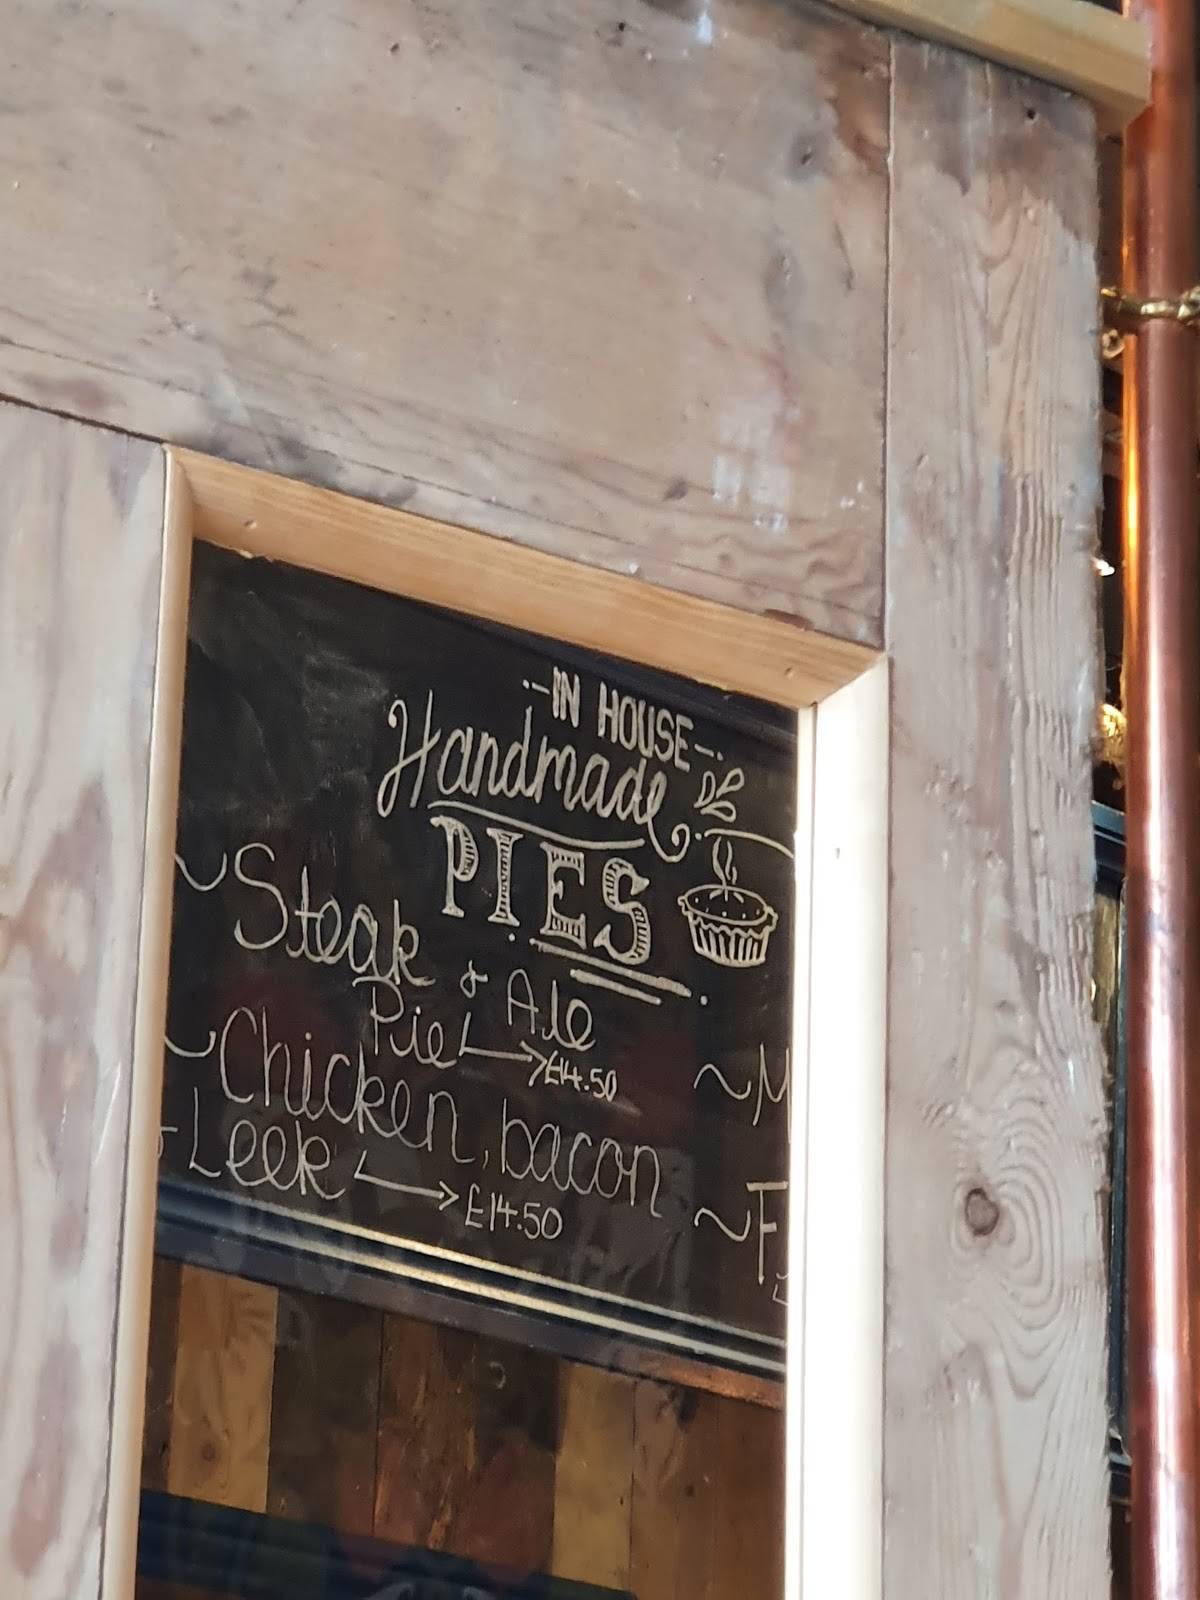 IN HOUSE
Handmade
PIES
~Steak & Ale
Pie → £14.50
~Chicken, bacon
& Leek → £14.50
~M
~F